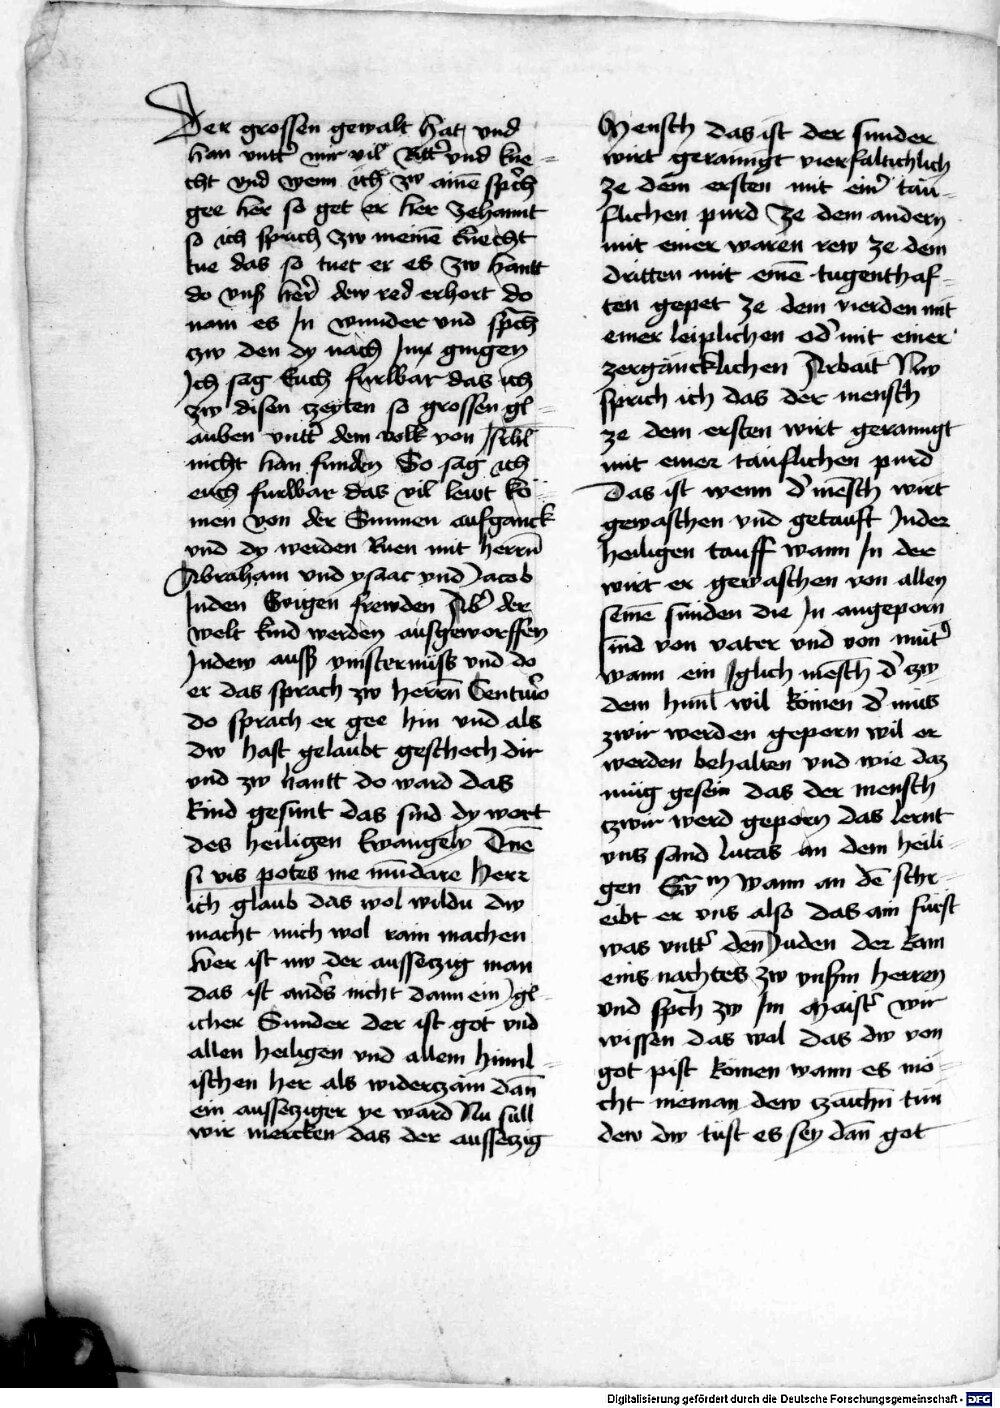 Der grossen gewalt hat und
han untter mir vil Ritter und kne-
cht und wenn ich zw ainē sprich
gee her so get er her zehannt
so ich sprich zw meinē knecht
tue das so tuet er es zw hantt
do unser her dew red erhort do
nam es In wunder und sprach
tzw den dy nach Im gingen
Ich sag Euch furbar das ich
zw disen tzeyten so grossen gl-
auben untter dem volk von Israhel
nicht han funden So sag ich
euch furbar das vil lewt ko-
men von der Sunnen aufganck
und dy werden Ruen mit herrn
Abraham und ysaac und Jacob
Inden Ewigen frewden Aber der
welt kind werden ausgeworffen
Indew auss vinsternuss und do
er das sprach zw herrn Centurio
do sprach er gee hin und als
dw hast gelaubt geschech dir
und zw hantt do ward das
kind gesunt das sind dy wort
des heiligen Ewangely Dne
si vis potes me mūdare Herr
ich glaub das wol wildu dw
macht mich wol rain machen
Wer ist nw der aussetzig man
das ist anders nicht dann ein Igl-
icher Sunder der ist got und
allen heiligen und allem himl-
ischen her als widerczam dan
ein aussetziger ye ward Nu sull
wir mercken das der aussetzig
Mensch das ist der sunder
wirt gerainigt vierfaltichlich
ze dem ersten mit einer tau-
flichen purd Ze dem andern
mit einer waren rew ze dem
dritten mit einē tugenthaf-
ten gepet ze dem vierden mit
einer leiplichen oder mit einer
zergäncklichen Arbait Nw
sprich ich das der mensch
ze dem ersten wirt gerainigt
mit einer tauflichen purd
Das ist wenn der mensch wirt
gewaschen und getauft Inder
heiligen tauff wann In der
wirt er gewaschen von allen
seinē sunden die In angeporn
sind von vater und von muter
wann ein Iglich mensch der zw
dem himl wil komen der mus
zwir werden geporn wil er
werden behalten und wie daz
müg gesein das der mensch
tzwir werd geporn das lernt
uns sand lucas an dem heili-
gen Ewm wann an dē schr-
eibt er uns also das ain fürst
was untter den Juden der kam
eins nachtes zw unserm herren
und sprach zw Im Maister wir
wissen das wol das dw von
got pist komen wann es mo-
cht nieman dew tzaichn tun
dew dw tust es sey dan got
Digitalisierung gefördert durch die Deutsche Forschungsgemeinschaft - DFG